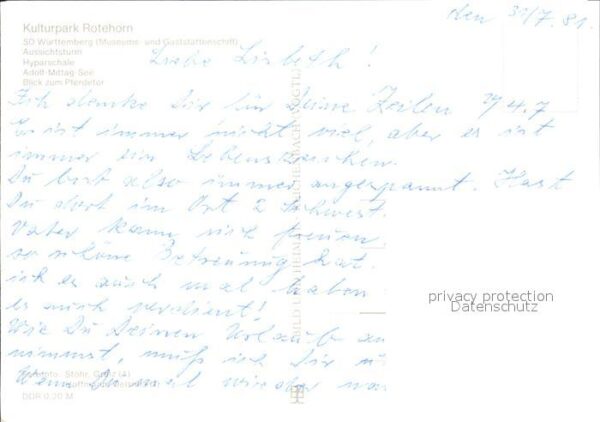 Kulturpark Rotehorn
SD Württemberg (Museums- und Gaststättenschiff)
Aussichtsturm
Hyparschale
Adolf-Mittag-See
Blick zum Pferdetor
den 31/7.81.
Liebe Lisbeth!
Ich danke Dir für Deine Zeilen 4.7
Es ist immer nicht viel, aber es ist
immer ein Lebenszeichen.
Du bist also immer angespannt. Hast
Du dort im Ort 2 Schwest.
Vater kann sich freuen
so schöne Betreuung hat.
ich es auch mal haben
es auch verdient!
Wie Du Deinen Urlaub an
nimmst, muß ich Dir
Wenn mal wieder
BILD UND HEIMAT REICHENBACH (VOGTL)
privacy protection
Datenschutz
DDR 0,20 M